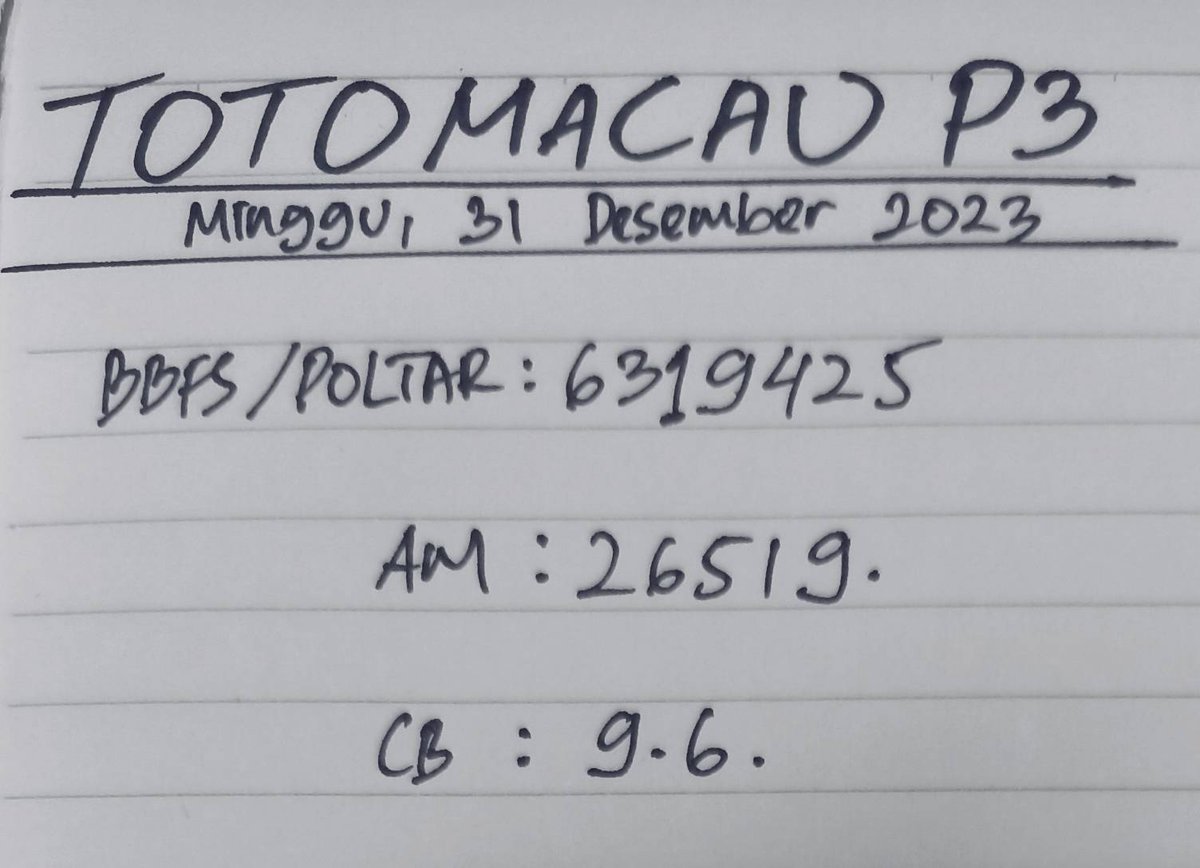 TOTO MACAU P3
Minggu, 31 Desember 2023
BBFS/POLTAR: 6319425
AM : 26519.
CB : 9.6.